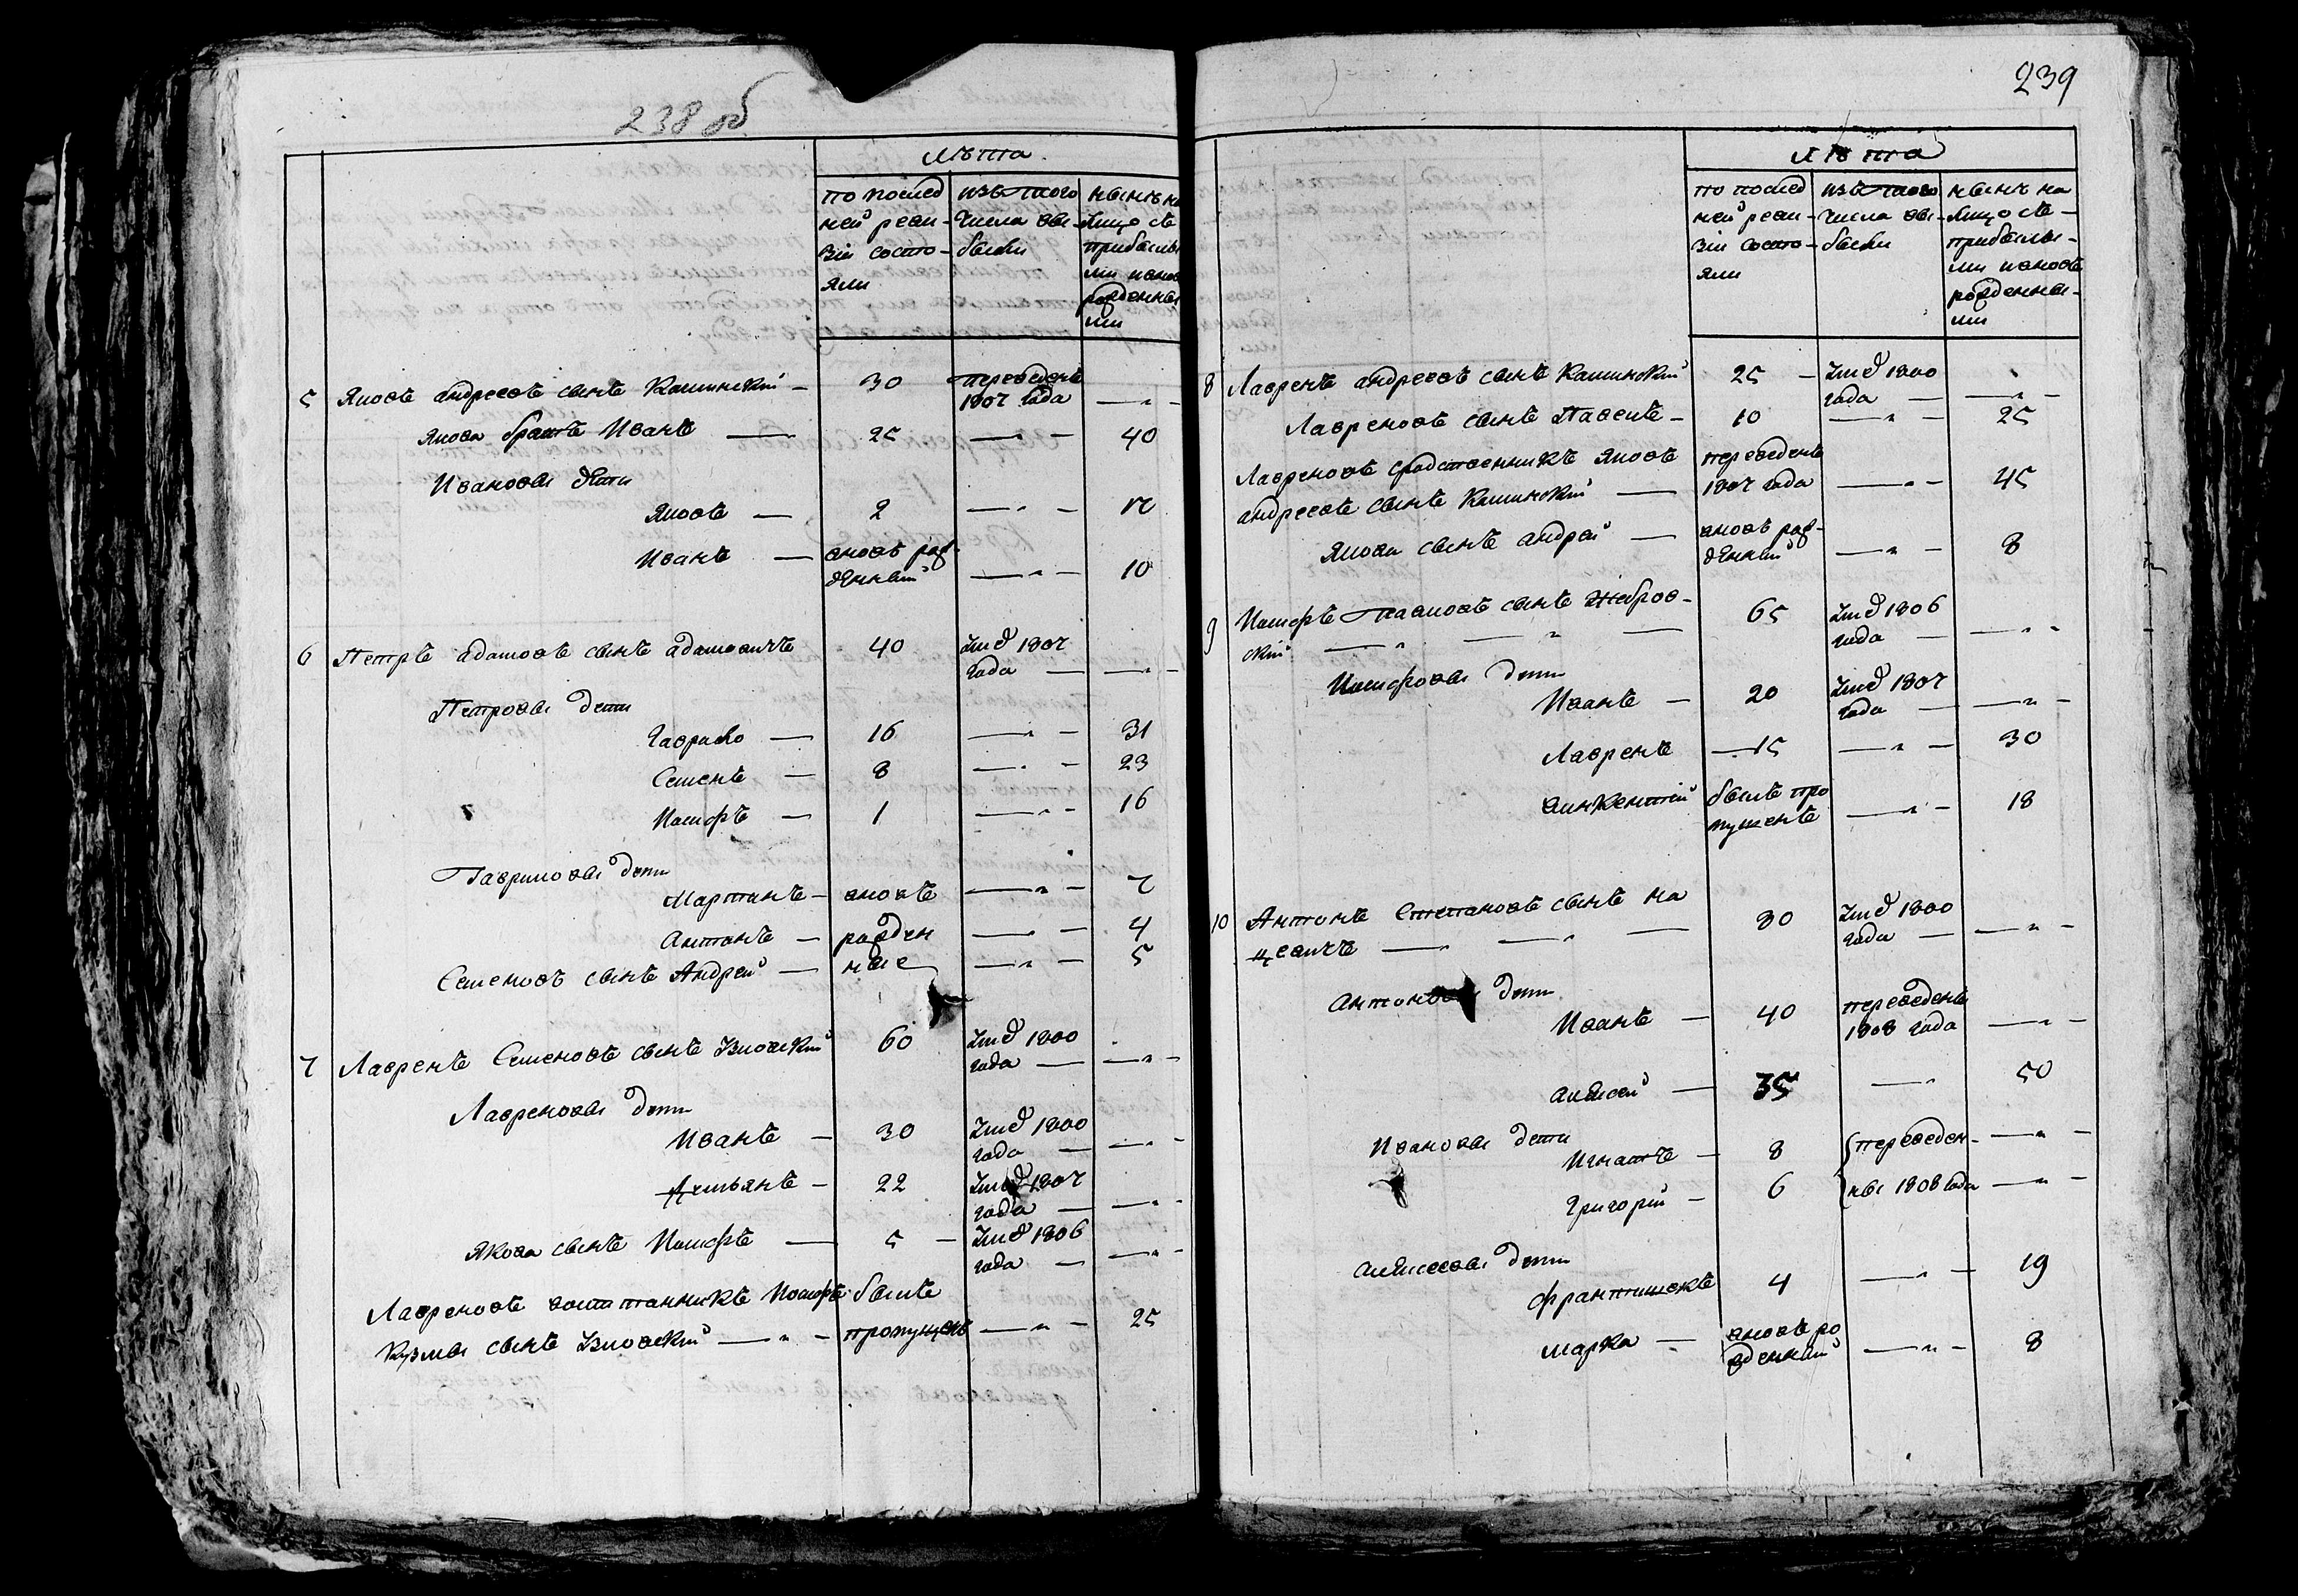 238 об
Лѣта
по послед
ней реви-
зіи состо-
яли
изъ того
числа вы-
было
нынѣ на
лицо съ
прибылы
ми и вновь
рожденны
ми
5 Яковъ андреевъ сынъ Каминскій — 30 переведенъ
1807 года — " —
Якова братъ Иванъ — 25 — " — 40
Ивановы дѣти
Яковъ — 2 — " — 17
Иванъ — вновь рож-
денный — " — 10
6 Петръ адамовъ сынъ адамовичъ 40 Умѣ 1807
года — — " —
Петровы дети
Гаврило — 16 — " — 31
Семенъ — 8 — " — 23
Иосифъ — 1 — " — 16
Гавриловы дети
Мартинъ — вновь — " — 7
Антонъ — рожден — " — 4
Семеновъ сынъ Андрей — ные — " — 5
7 Лавренъ Семеновъ сынъ 60 Умѣ 1800
года — — " —
Лавреновы дети
Иванъ — 30 Умѣ 1800
года — — " —
Демьянъ — 22 Умѣ 1807
года — — " —
Якова сынъ Иосифъ — 5 — Умѣ 1806
года — — " —
Лавреновъ воспитанникъ Иосифъ былъ
Кузмы сынъ — " — пропущенъ — " — 25
239
Лѣта
по послед
ней реви-
зіи состо-
яли
изъ того
числа вы-
было
нынѣ на
лицо съ
прибылы-
ми и вновь
рожденны-
ми
8 Лавренъ андреевъ сынъ Каминскій 25 — Умѣ 1800
года — — " —
Лавреновъ сынъ Павелъ — 10 — " — 25
Лавреновъ сродственникъ Яковъ переведенъ
андреевъ сынъ Каминскій — 1807 года — " — 45
Якова сынъ андрей — вновь рож-
денный — " — 8
9 Иосифъ Павловъ сынъ Жебров- 65 Умѣ 1806
скій — " — " — года — — " —
Иосифовы дети
Иванъ — 20 Умѣ 1807
года — — " —
Лавренъ — 15 — " — 30
винкентій былъ про
пущенъ — " — 18
10 Антонъ Степановъ сынъ Ма 80 Умѣ 1800
цевичъ — " — " — года — — " —
Антоновы дети
Иванъ — 40 переведенъ
1808 года — " —
алѣксей — 35 — " 50
Ивановы дети
Игнатъ — 8 переведен- — " —
Григорій — 6 ны 1808 года — " —
алѣксеевы дети
францишекъ 4 — " — 19
марка — вновь ро
жденный — " — 8